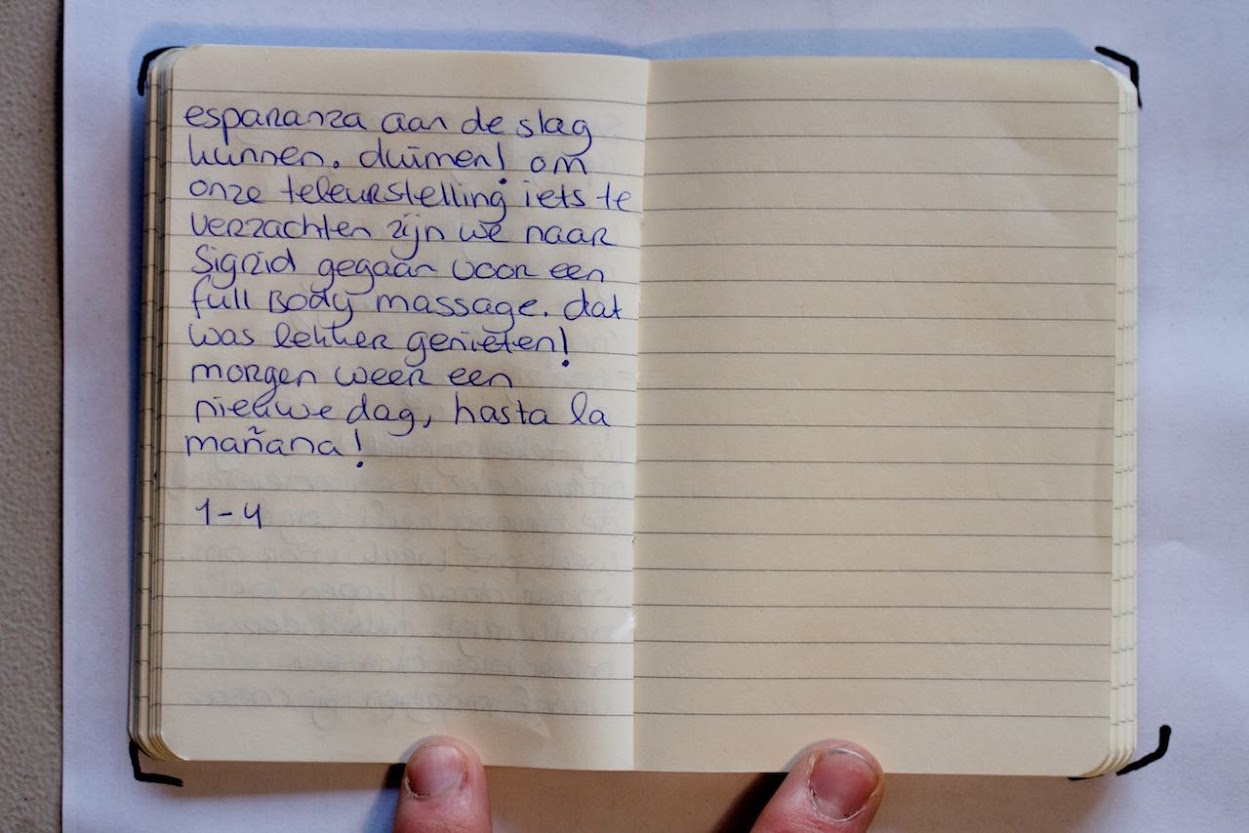 esparanza aan de slag
kunnen. duimen! om
onze teleurstelling iets te
verzachten zijn we naar
Sigrid gegaan voor een
full Body massage. dat
was lekker genieten!
morgen weer een
nieuwe dag, hasta la
mañana!
1-4